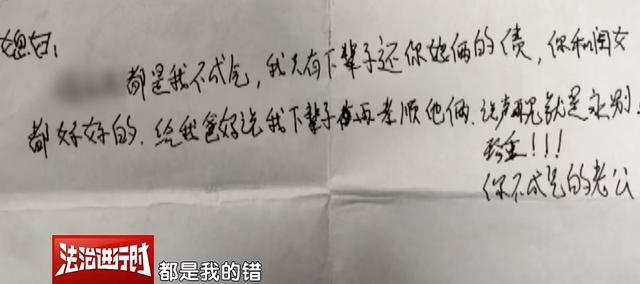 媳妇:
都是我不成气,我只有下辈子还你娘俩的债,你和闺女
都好好的.给我爸妈说我下辈子再孝顺他俩.说声再见就是永别.
!!!
你不成气的老公
法治进行时
都是我的错